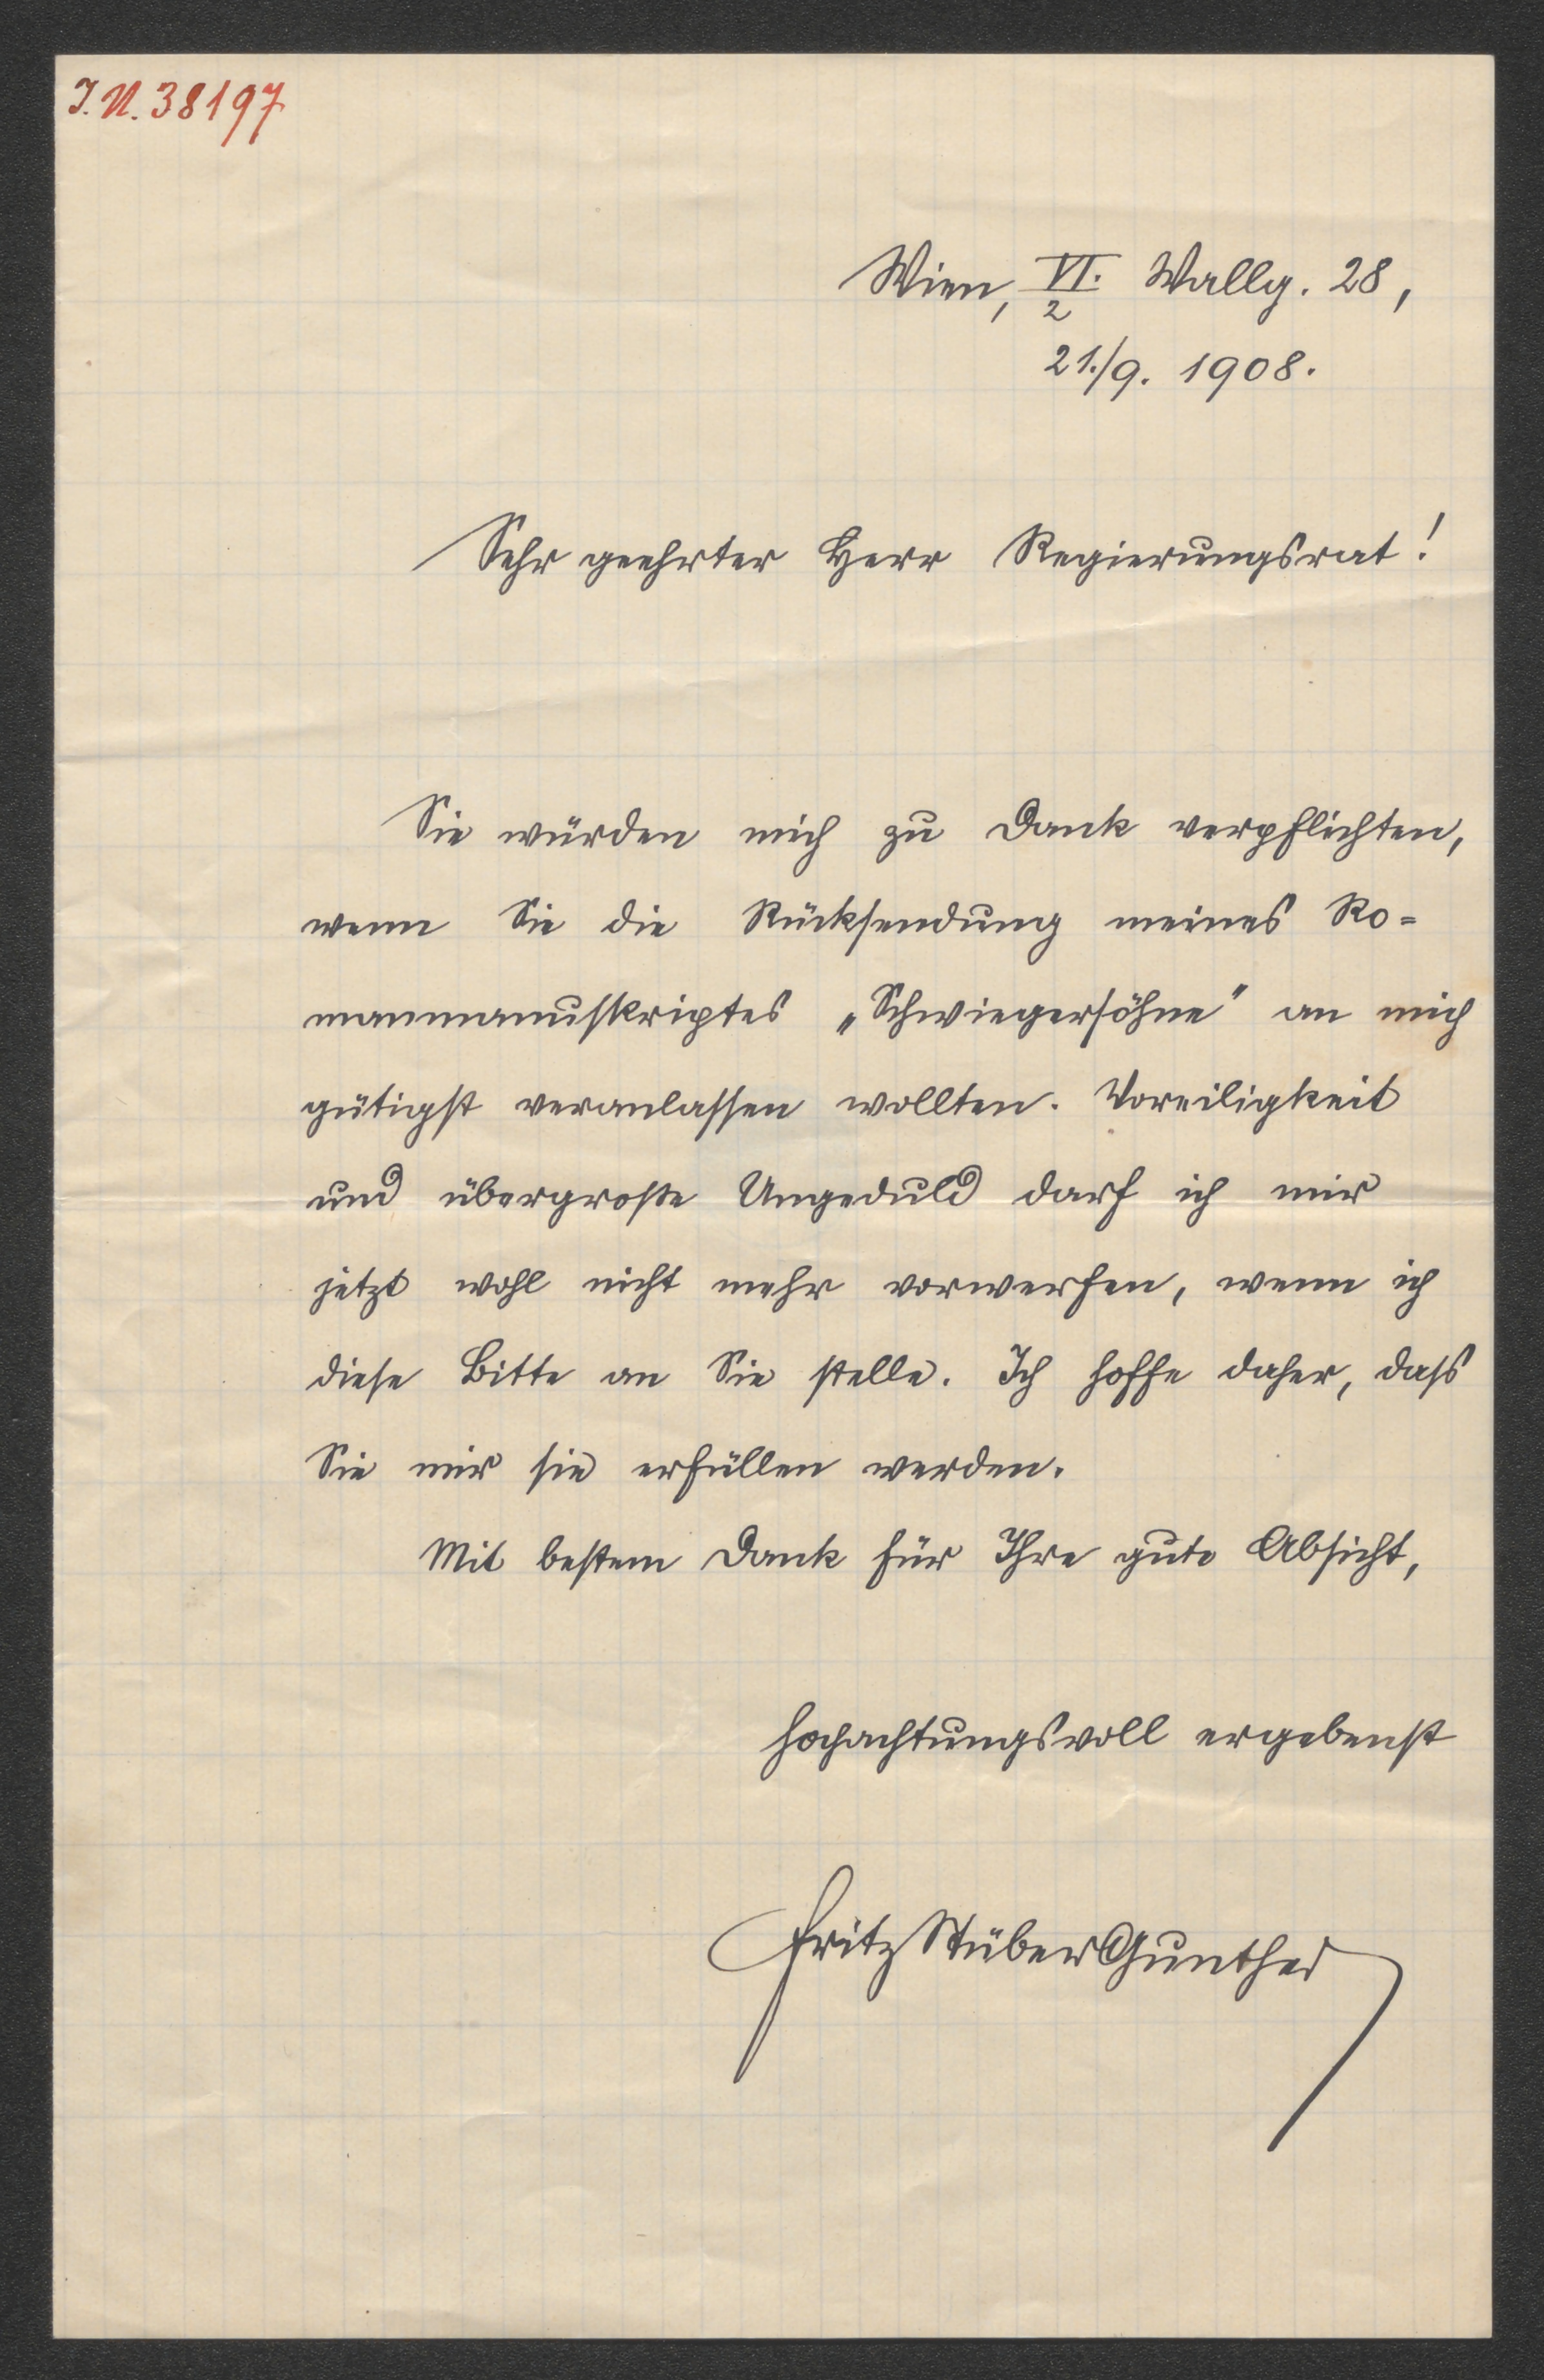 J. N. 38197
Wien, VI./2 Wallg. 28,
21./9. 1908.
Sehr geehrter Herr Regierungsrat!
Sie würden mich zu Dank verpflichten,
wenn Sie die Rücksendung meines Ro=
manmanuskriptes „Schwiegersöhne" an mich
gütigst veranlassen wollten. Voreiligkeit
und übergroße Ungeduld darf ich mir
jetzt wohl nicht mehr vorwerfen, wenn ich
diese Bitte an Sie stelle. Ich hoffe daher, dass
Sie mir sie erfüllen werden.
Mit bestem Dank für Ihre gute Absicht,
hochachtungsvoll ergebenst
Fritz Stüber Gunther